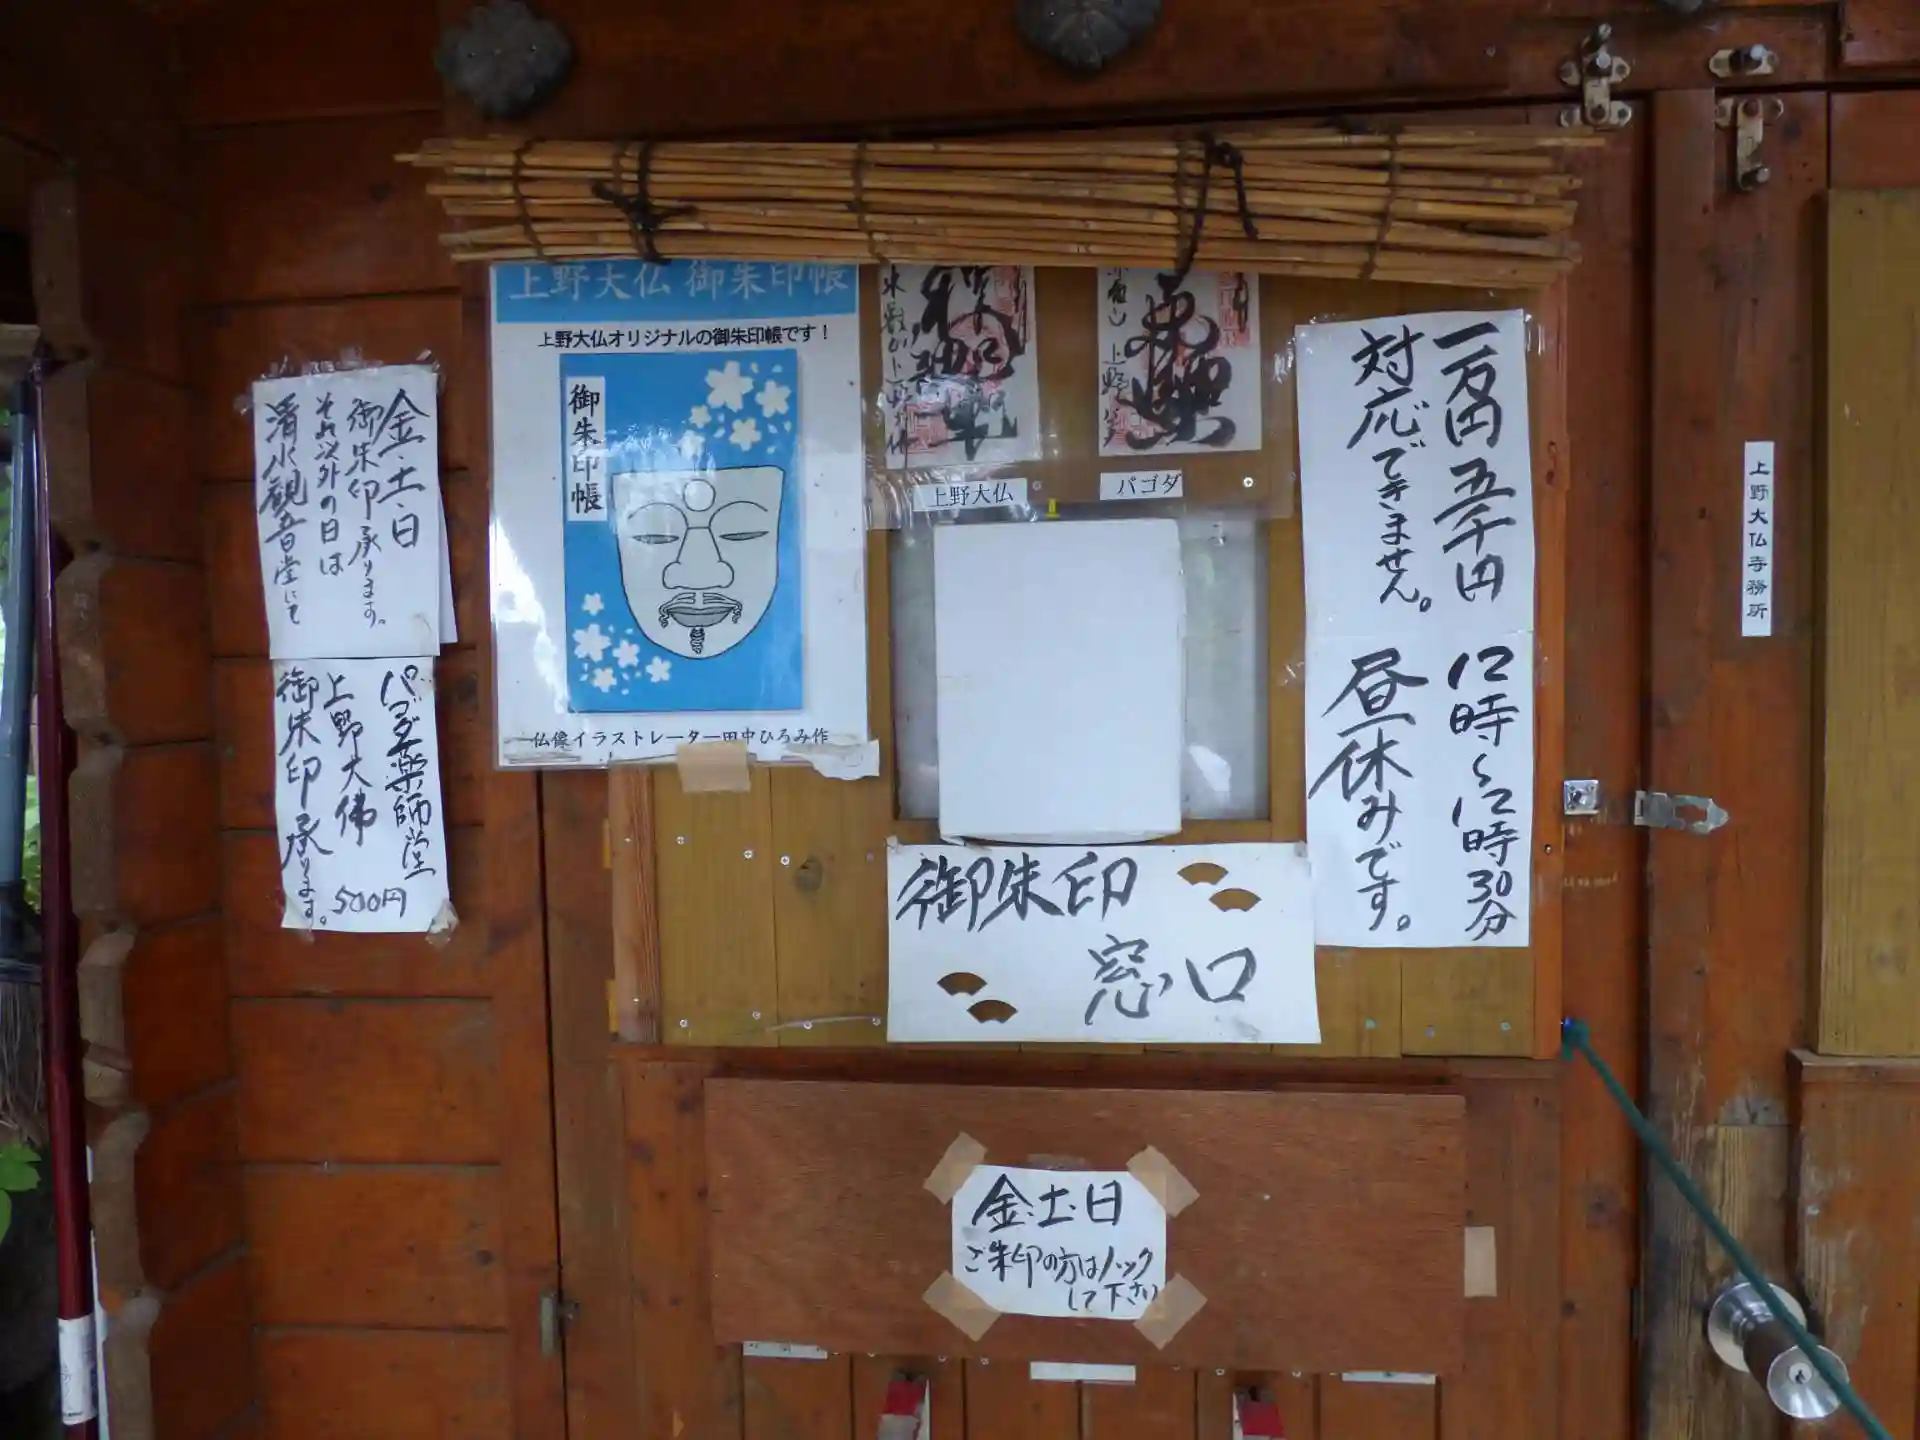 金・土・日
御朱印承ります。
それ以外の日は
清水観音堂にて
パゴダ薬師堂
上野大佛
御朱印承ります。
500円
上野大仏 御朱印帳
上野大仏オリジナルの御朱印帳です!
御朱印帳
仏像イラストレーター田中ひろみ作
上野大仏
パゴダ
一万円 五千円
対応できません。
12時~12時30分
昼休みです。
上野大仏寺務所
御朱印
窓口
金・土・日
ご朱印の方はノック
して下さい